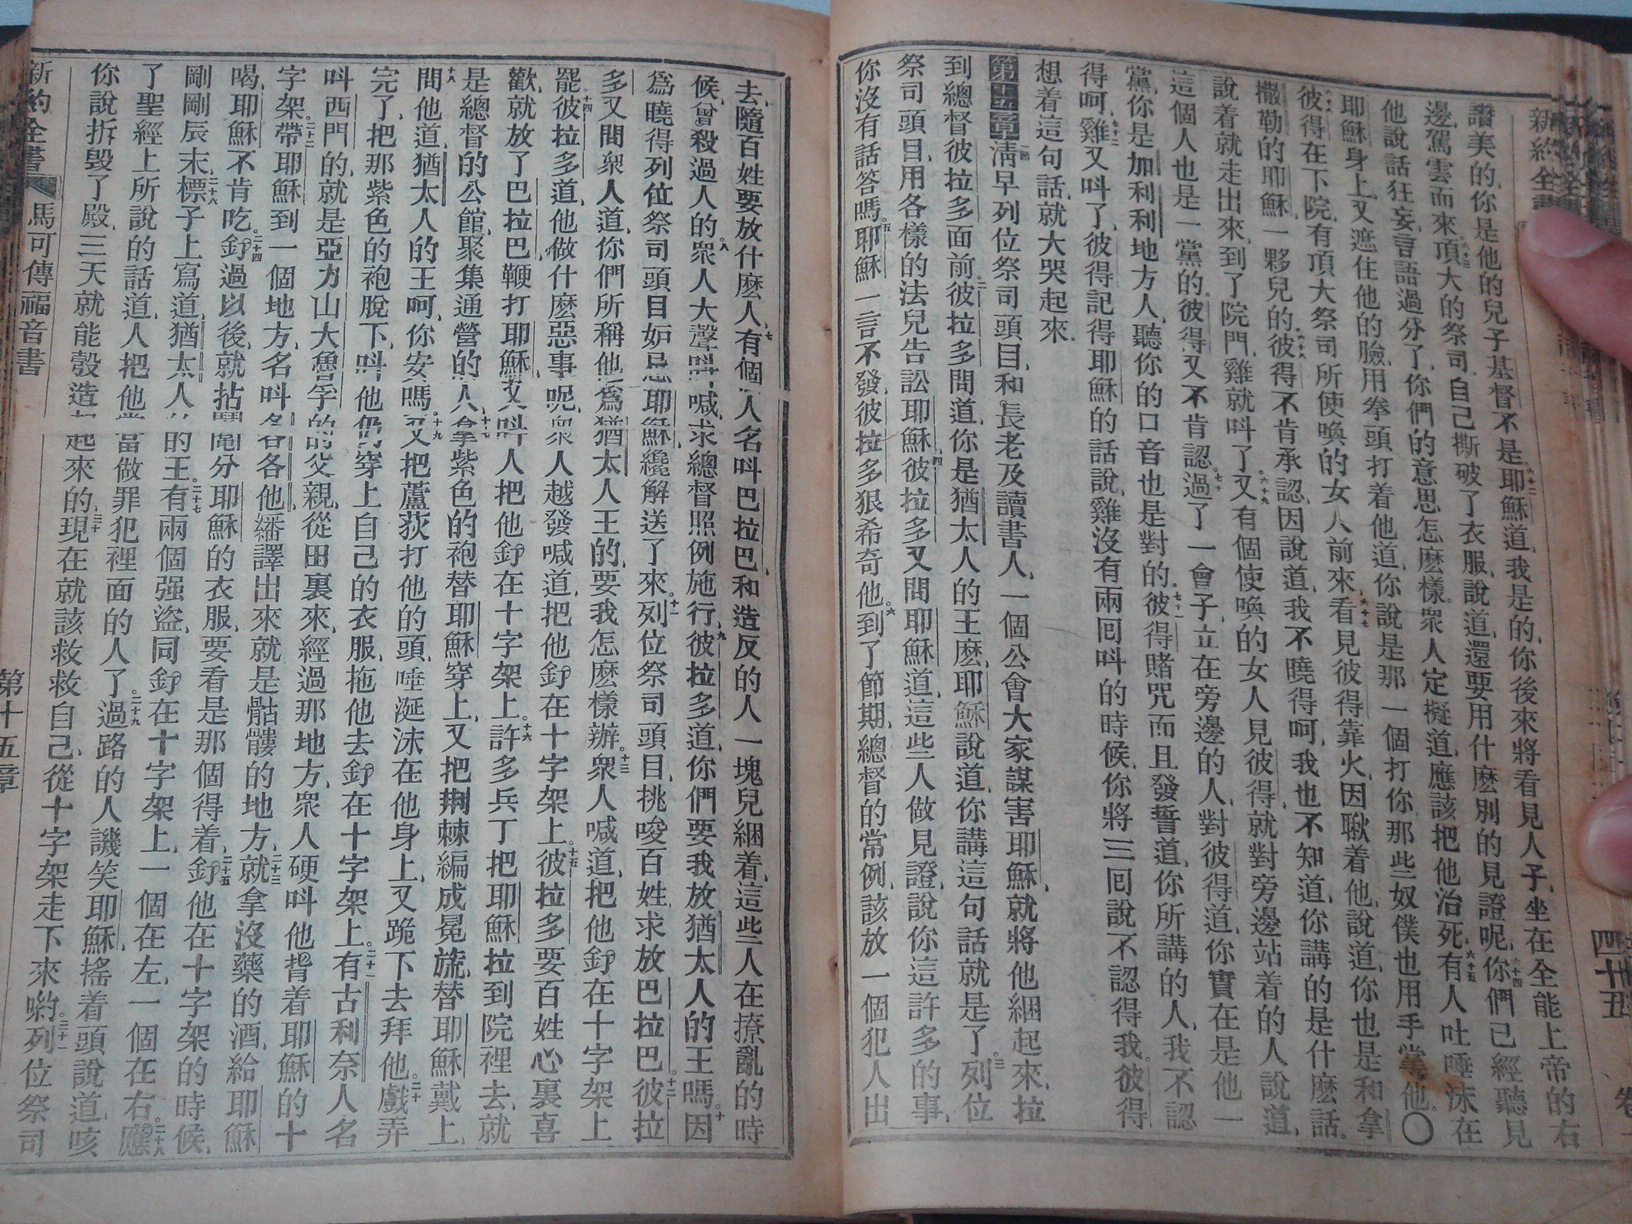 新約全書
讚美的、你是他的兒子基督不是、耶穌道、我是的、你後來將看見人子、坐在全能上帝的右
邊、駕雲而來、頂大的祭司、自己撕破了衣服、說道、還要用什麽別的見證呢、你們已經聽見
他說話狂妄、言語過分了、你們的意思怎麽樣、衆人定擬道、應該把他治死、有人吐唾沫在
耶穌身上、又遮住他的臉、用拳頭打着他、道、你說是那一個打你、那些奴僕也用手掌他、〇
彼得在下院、有頂大祭司所使喚的女人前來、看見彼得靠火、因瞅着他、說道、你也是和拿
撒勒的耶穌一夥兒的、彼得不肯承認、因說道、我不曉得呵、我也不知道、你講的是什麽話、
說着就走出來、到了院門、雞就呌了、又有個使喚的女人見彼得、就對旁邊站着的人說道、
這個人也是一黨的、彼得又不肯認、過了一會子、立在旁邊的人、對彼得道、你實在是他一
黨、你是加利利地方人、聽你的口音也是對的、彼得賭咒而且發誓道、你所講的人、我不認
得呵、雞又呌了、彼得記得耶穌的話說、雞沒有兩囘呌的時候、你將三囘說、不認得我、彼得
想着這句話、就大哭起來、
第十五章 淸早列位祭司頭目、和長老及讀書人、一個公會大家謀害耶穌、就將他綑起來、拉
到總督彼拉多面前、彼拉多問道、你是猶太人的王麽、耶穌說道、你講這句話就是了、列位
祭司頭目、用各樣的法兒告訟耶穌、彼拉多又問耶穌道、這些人做見證、說你這許多的事、
你沒有話答嗎、耶穌一言不發、彼拉多狠希奇他、到了節期、總督的常例、該放一個犯人出
四十五
去、隨百姓要放什麽人、有個人名呌巴拉巴、和造反的人一塊兒綑着、這些人在撩亂的時
候、曾殺過人的、衆人大聲呌喊、求總督照例施行、彼拉多道、你們要我放猶太人的王嗎、因
爲曉得列位祭司頭目妒忌耶穌、纔解送了來、列位祭司頭目、挑唆百姓、求放巴拉巴、彼拉
多又問衆人道、你們所稱他爲猶太人王的、要我怎麽樣辦、衆人喊道、把他釘在十字架上
罷、彼拉多道、他做什麽惡事呢、衆人越發喊道、把他釘在十字架上、彼拉多要百姓心裏喜
歡、就放了巴拉巴、鞭打耶穌、又呌人把他釘在十字架上、許多兵丁把耶穌拉到院裡去、就
是總督的公館、聚集通營的人、拿紫色的袍替耶穌穿上、又把荆棘編成冕旒、替耶穌戴上、
問他道、猶太人的王呵、你安嗎、又把蘆荻打他的頭、唾涎沫在他身上、又跪下去拜他、戲弄
完了、把那紫色的袍脫下、呌他仍穿上自己的衣服、拖他去釘在十字架上、有古利奈人名
呌西門的、就是亞力山大魯孚的父親、從田裏來、經過那地方、衆人硬呌他揹着耶穌的十
字架、帶耶穌到一個地方、名呌各各他、繙譯出來就是骷髏的地方、就拿沒藥的酒給耶穌
喝、耶穌不肯吃、釘過以後、就拈鬮分耶穌的衣服、要看是那個得着、釘他在十字架的時候、
剛剛辰末、標子上寫道、猶太人的王、有兩個强盜、同釘在十字架上、一個在左、一個在右、應
了聖經上所說的話道、人把他當做罪犯裡面的人了、過路的人譏笑耶穌、搖着頭說道、咳
你說拆毀了殿、三天就能彀造起來的、現在就該救救自己、從十字架走下來喲、列位祭司
新約全書 馬可傳福音書 第十五章